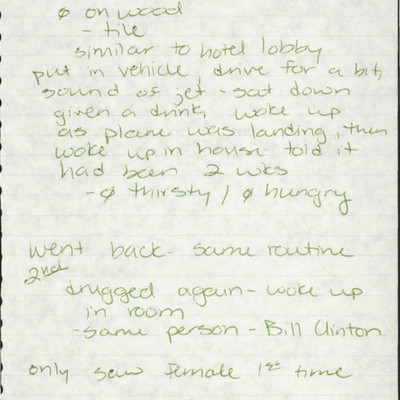 ∅ on wood
- tile
similar to hotel lobby
put in vehicle, drive for a bit,
sound of jet - sat down
given a drink, woke up
as plane was landing, then
woke up in house told it
had been 2 wks
- ∅ thirsty / ∅ hungry
went back - same routine
2nd
drugged again - woke up
in room
- same person - Bill Clinton
only saw female 1st time